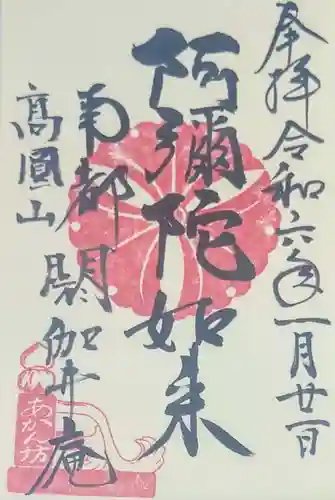 奉拝 令和六年一月廿一日
阿彌陀如来
南都 閼伽井庵
高圓山
あかん坊